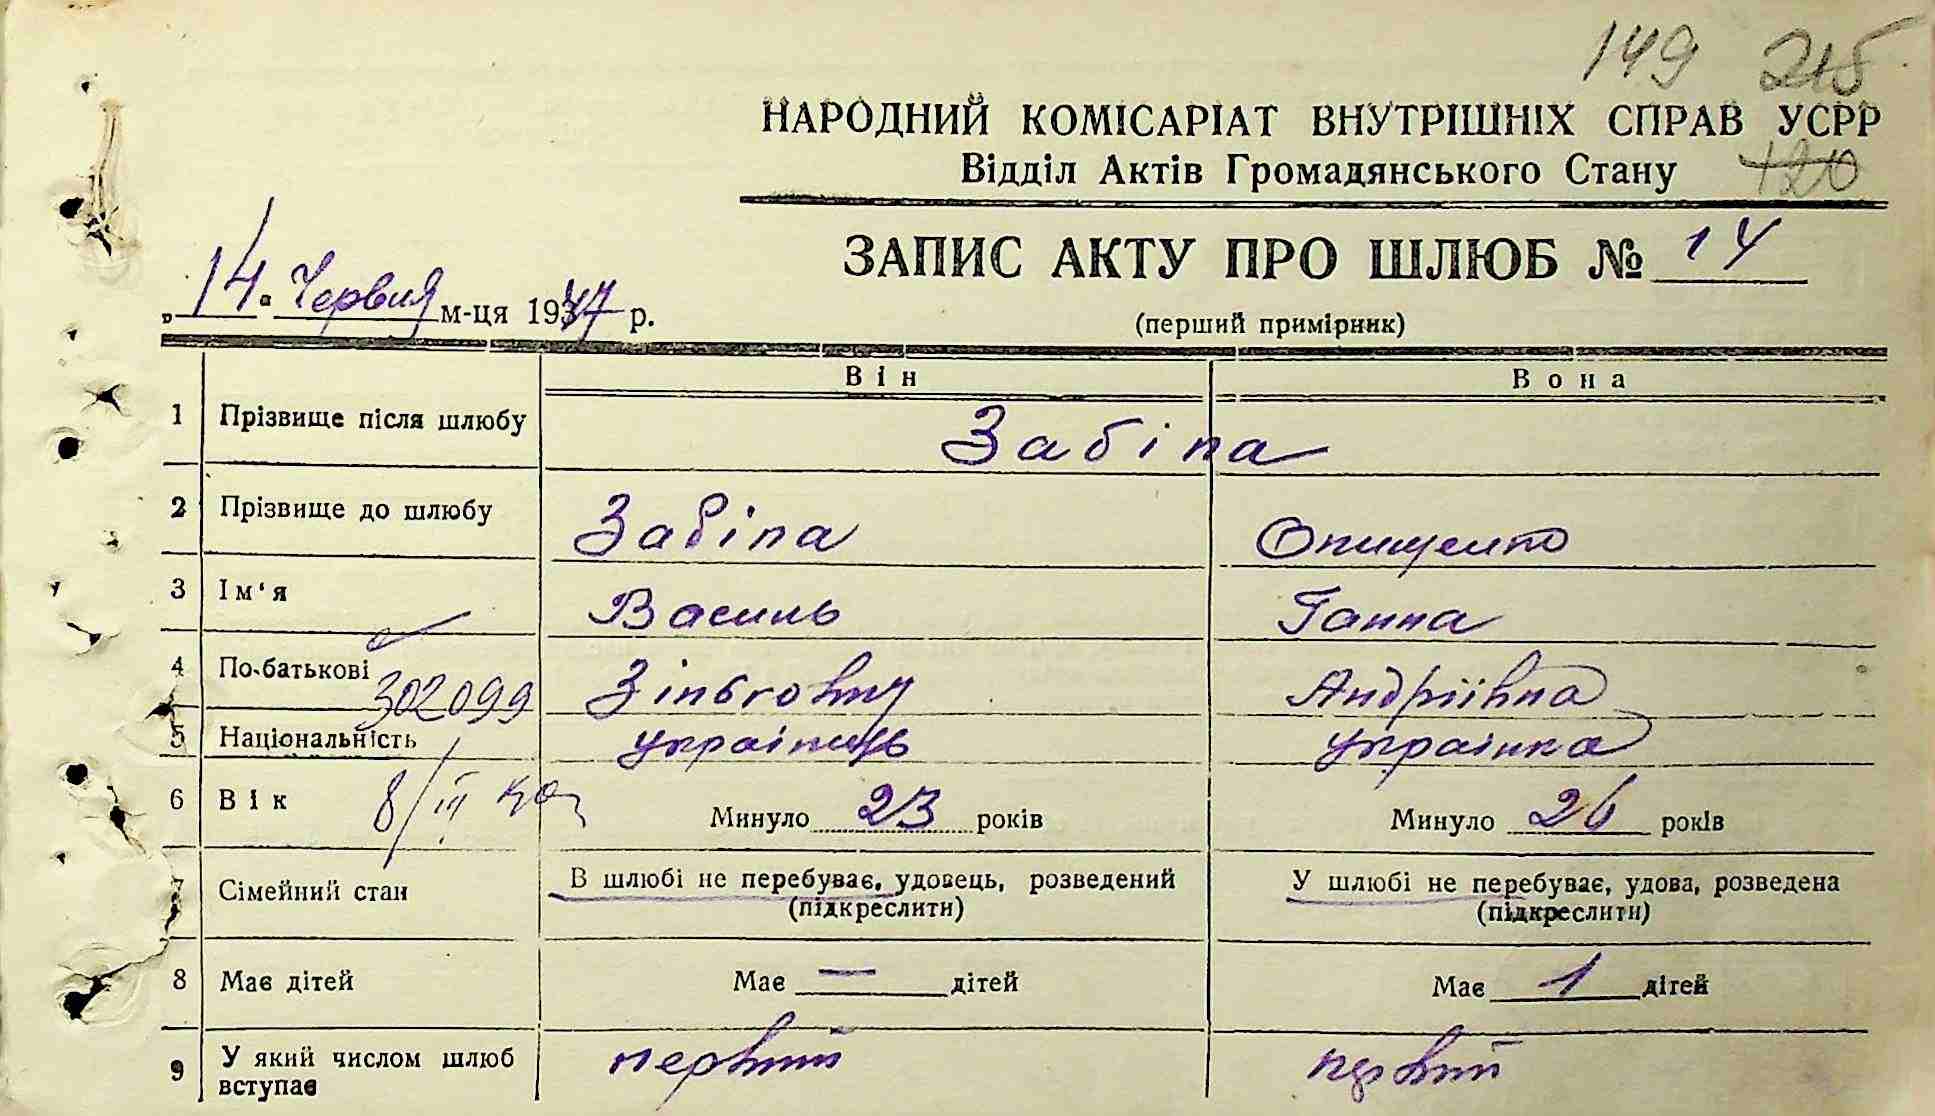 149 215
НАРОДНИЙ КОМІСАРІАТ ВНУТРІШНІХ СПРАВ УСРР
Відділ Актів Громадянського Стану 120
ЗАПИС АКТУ ПРО ШЛЮБ № 14
„14" Червня м-ця 1947 р.
(перший примірник)
Він Вона
1 Прізвище після шлюбу Забіпа
2 Прізвище до шлюбу Забіпа Онищенко
3 Ім'я Василь Ганна
4 По-батькові 302099 Андріївна
5 Національність українець українка
6 Вік 8/III Минуло 23 років Минуло 26 років
7 Сімейний стан В шлюбі не перебуває, удовець, розведений У шлюбі не перебуває, удова, розведена
(підкреслити) (підкреслити)
8 Має дітей Має — дітей Має 1 дітей
9 У який числом шлюб вступає первий первий